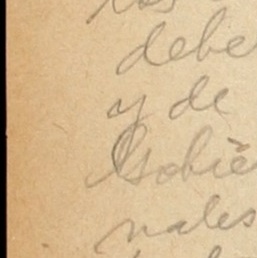 los
debe
y de
Gobie
nales